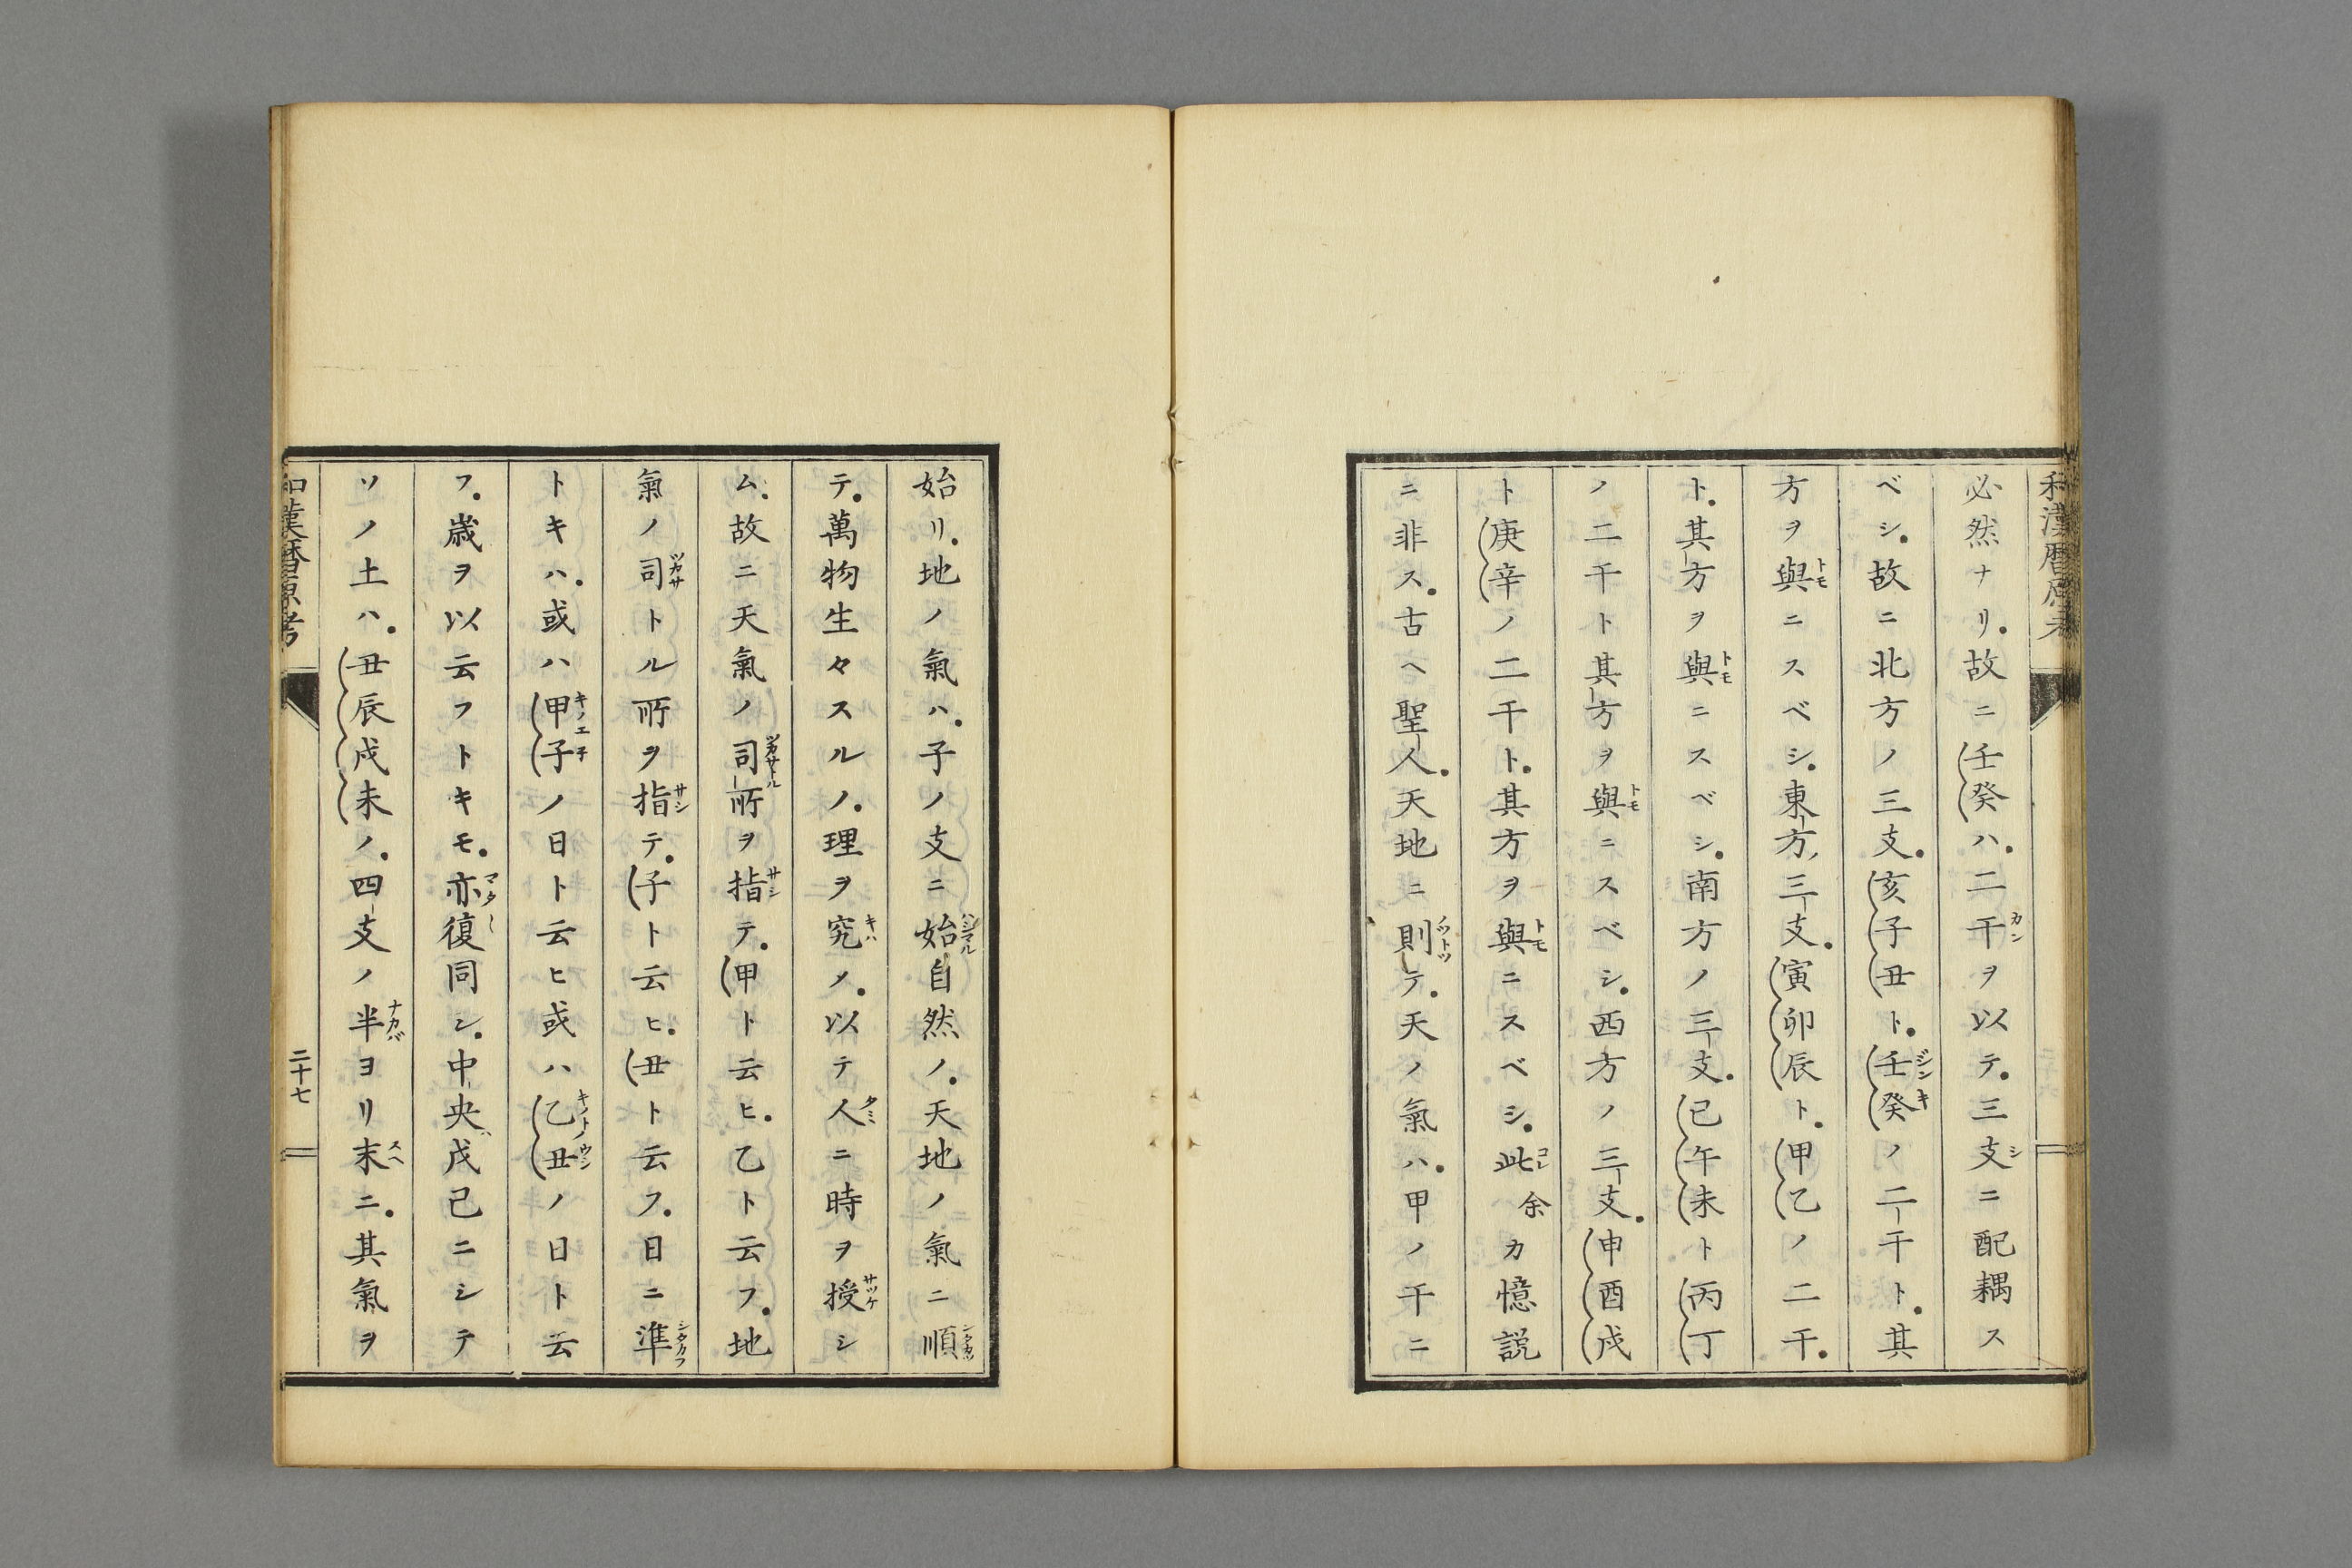 必然ナリ。故ニ壬癸ハ。二干ヲ以テ。三支ニ配耦ス
ベシ。故ニ北方ノ三支。亥子丑ト。壬癸ノ二干ト。其
方ヲ與ニスベシ。東方三支。寅卯辰ト。甲乙ノ二干。
ト。其方ヲ與ニスベシ。南方ノ三支。巳午未ト丙丁
ノ二干ト其方ヲ與ニスベシ。西方ノ三支。申酉戌
ト庚辛ノ二干ト。其方ヲ與ニスベシ。此余カ憶説
ニ非ス。古ヘ聖人。天地ニ則テ。天ノ氣ハ。甲ノ干ニ
始リ。地ノ氣ハ。子ノ支ニ始自然ノ。天地ノ氣ニ順
テ。萬物生々スルノ。理ヲ究メ。以テ人ニ時ヲ授シ
ム。故ニ天氣ノ司所ヲ指テ。甲ト云ヒ。乙ト云フ。地
氣ノ司トル所ヲ指テ。子ト云ヒ。丑ト云フ。日ニ準
トキハ。或ハ甲子ノ日ト云ヒ或ハ乙丑ノ日ト云
フ。歳ヲ以云フトキモ。亦復同シ。中央戊己ニシテ
ソノ土ハ。丑辰戌未ノ。四支ノ半ヨリ末ニ。其氣ヲ
和漢暦原考
二十七